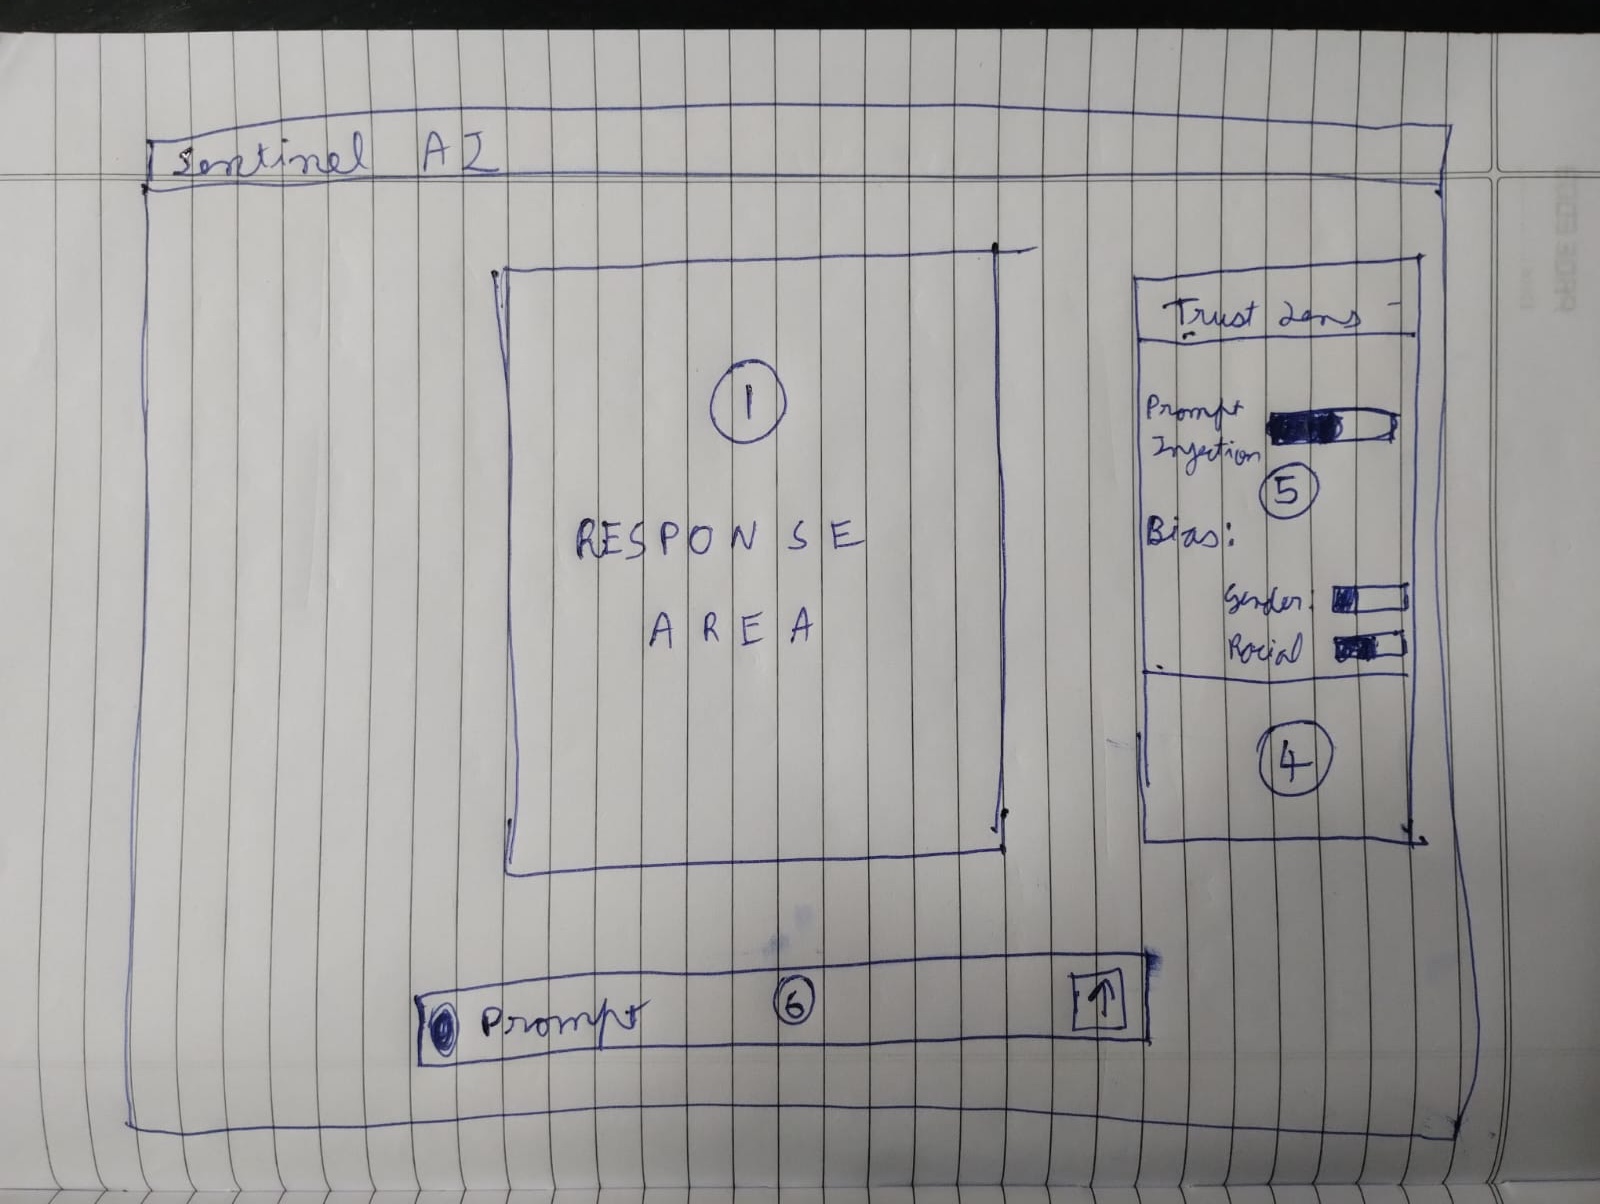 Sentinel AI
1
RESPONSE
AREA
Trust Lens
Prompt
Injection
5
Bias:
Gender:
Racial
4
Prompt 6 ↑